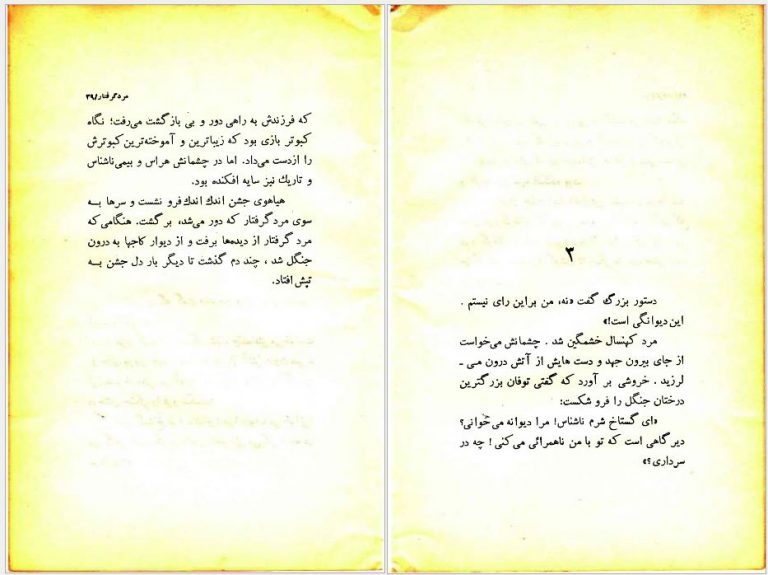 مرد گرفتار/۳۹
که فرزندش به راهی دور و بی بازگشت می‌رفت؛ نگاه
کبوتر بازی بود که زیباترین و آموخته‌ترین کبوترش
را ازدست می‌داد. اما در چشمانش هراس و بیمی‌ناشناس
و تاریک نیز سایه افکنده بود.
هیاهوی جشن اندک اندک فرو نشست و سرها بـه
سوی مرد گرفتار که دور می‌شد، بر گشت. هنگامی‌که
مرد گرفتار از دیده‌ها برفت و از دیوار کاجها به درون
جنگل شد ، چند دم گذشت تا دیگر بار دل جشن بـه
تپش افتاد.
۳
دستور بزرگ گفت «نه، من براین رای نیستم .
این دیوانگی است!»
مرد کهنسال خشمگین شد . چشمانش می‌خواست
از جای بیرون جهد و دست هایش از آتش درون مـی ـ
لرزید . خروشی بر آورد که گفتی توفان بزرگترین
درختان جنگل را فرو شکست:
«ای گستاخ شرم ناشناس! مرا دیوانه می‌خوانی؟
دیر گاهی است که تو با من ناهمرائی می‌کنی! چه در
سرداری؟»